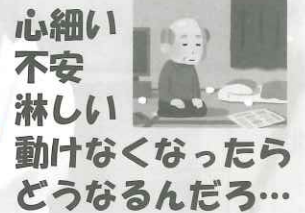 心細い
不安
淋しい
動けなくなったら
どうなるんだろ…